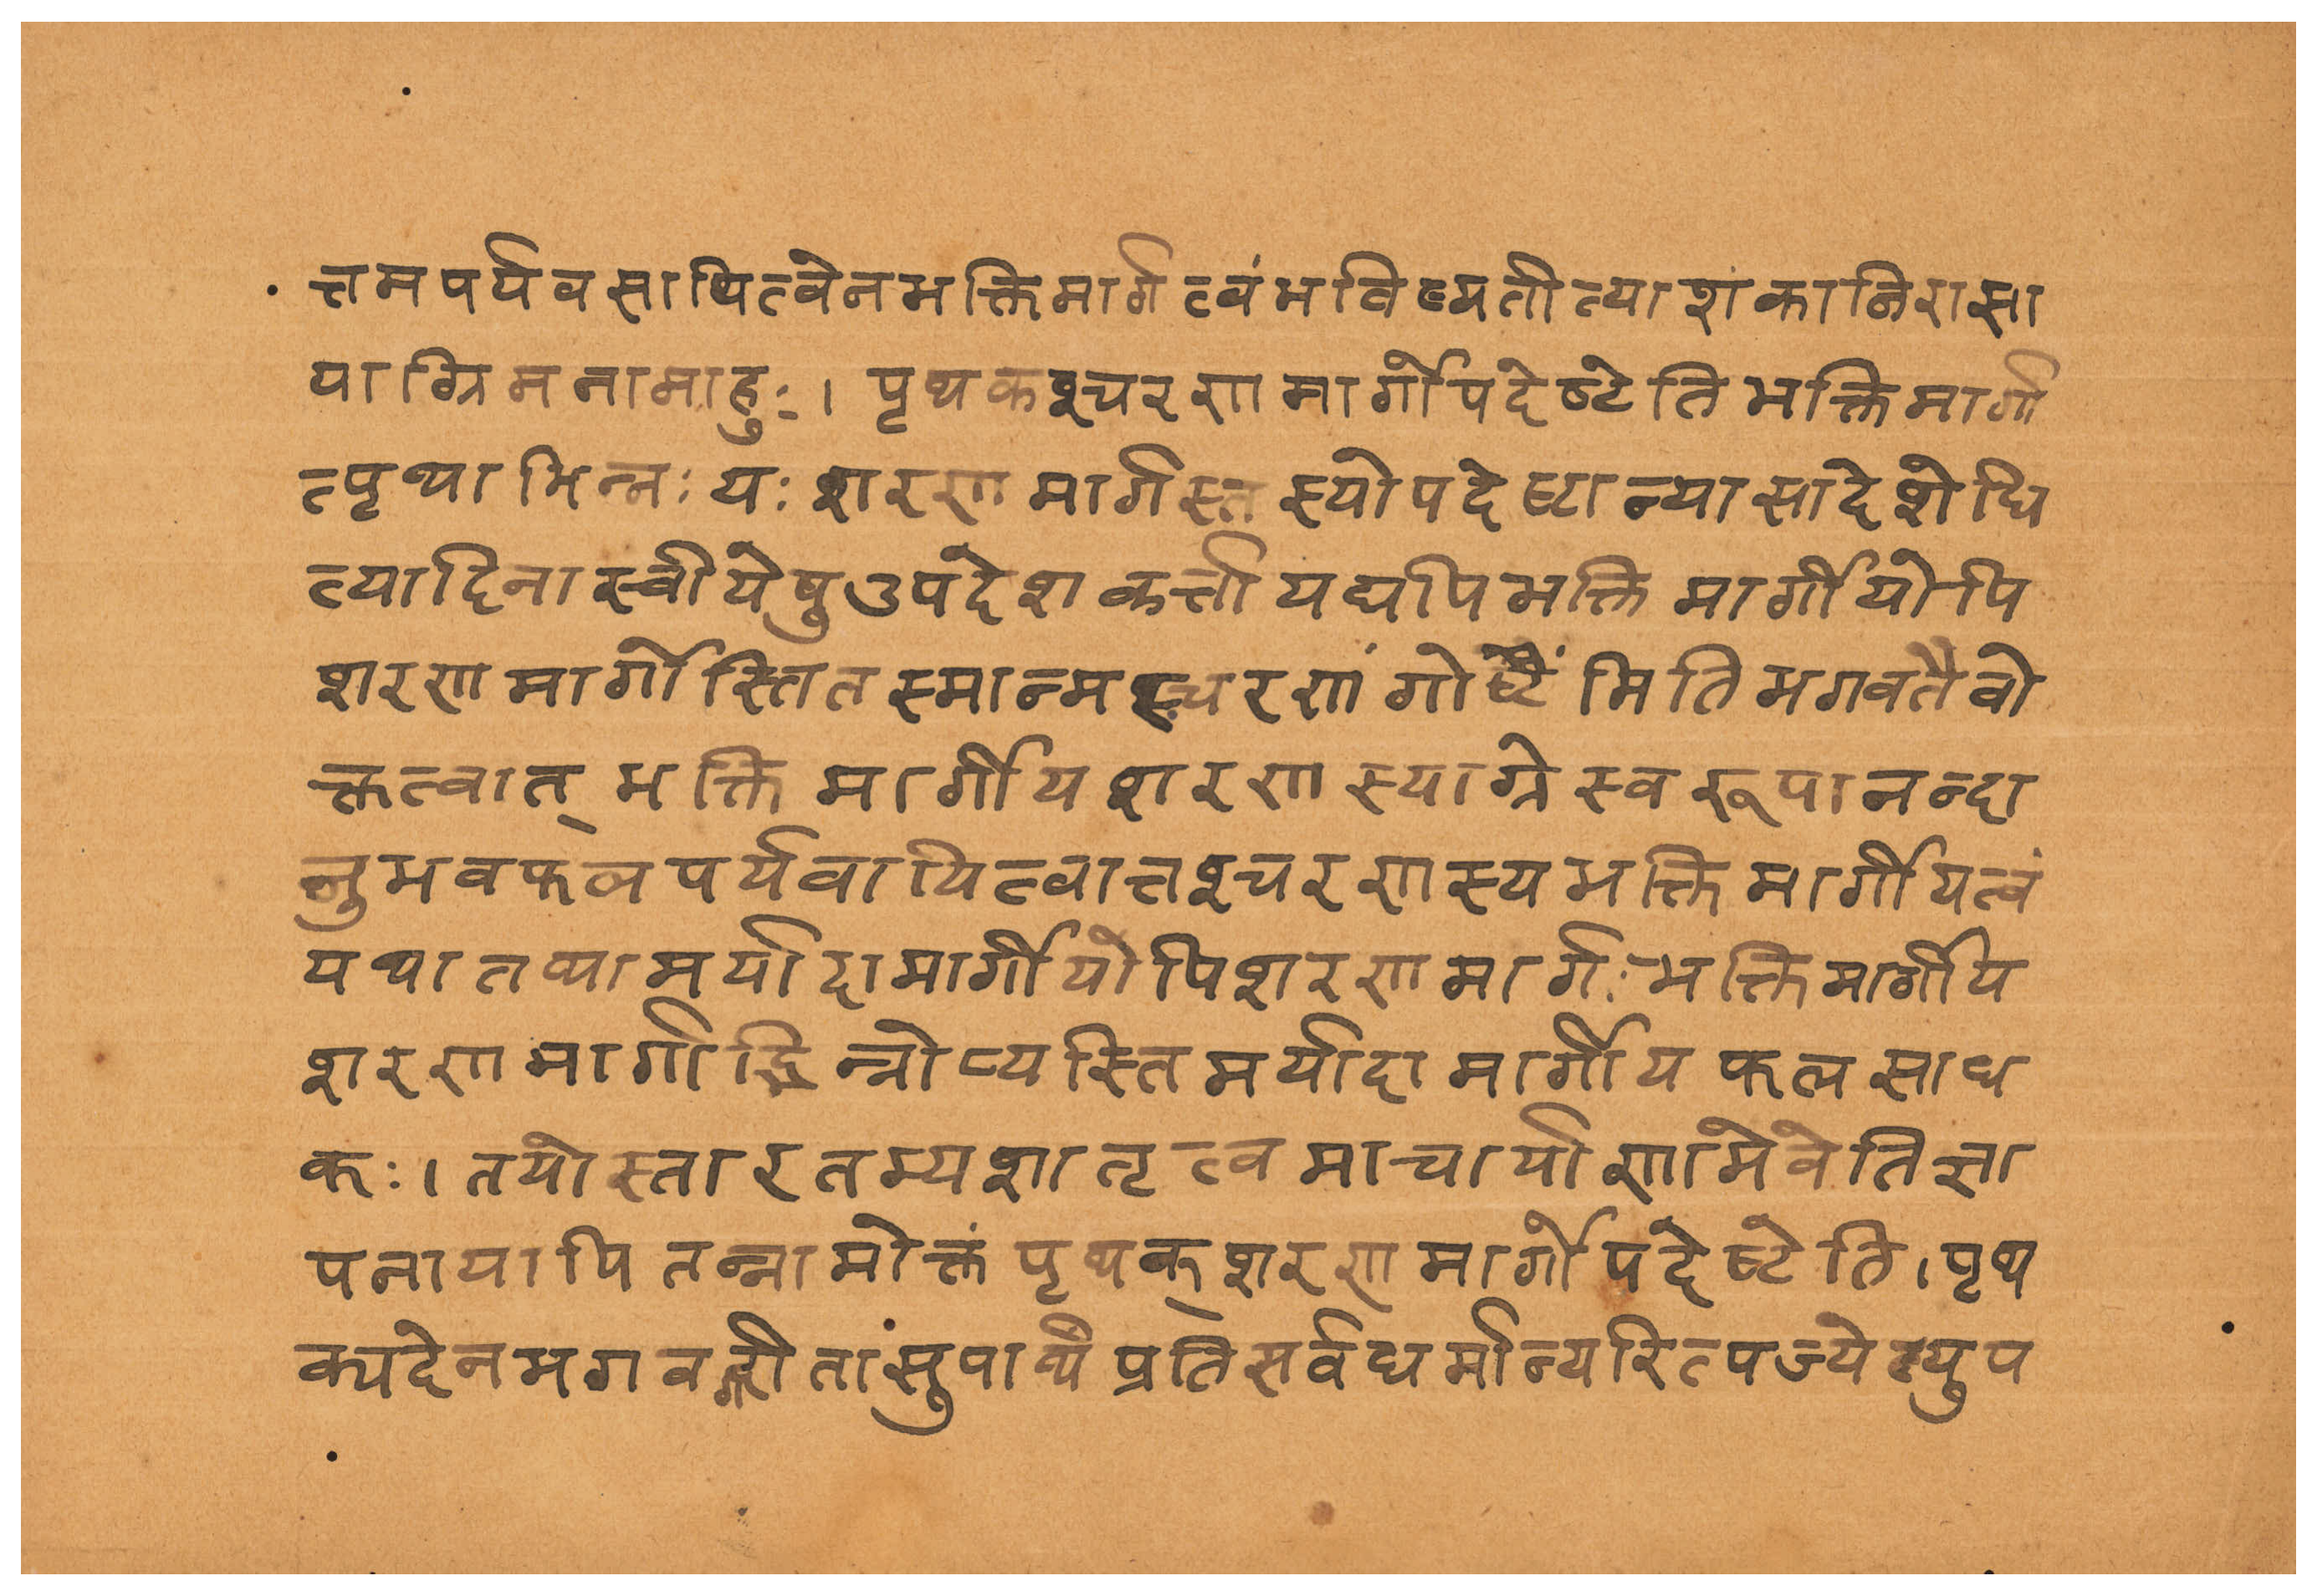 त्तमपर्यवसायित्वेनभक्तिमार्गत्वंभविष्यतीत्याशंकानिरासा
याग्रिमनामाहुः। पृथकश्चरणमार्गोपदेष्टेतिभक्तिमार्गा
त्पृथाभिन्नः यः शरणमार्गस्तस्योपदेष्टान्यासादेशेधि
त्यादिनास्वीयेषुउपदेशकर्त्तायद्यपिभक्तिमार्गीयोपि
शरणमार्गोस्तितस्मान्मच्चरणं गोष्टंमितिभगवतैवो
क्तत्वात्भक्तिमार्गीयशरणस्याग्रेस्वरूपानन्दा
नुभवफलपर्यवायित्वात्तश्चरणस्यभक्तिमार्गीयत्वं
यथातथामर्यादामार्गीयोपिशरणमार्गःभक्तिमार्गीय
शरणमार्गाद्भिन्नोप्यस्तिमर्यादामार्गीयफलसाध
कः।तयोस्तारतम्यज्ञातृत्वमाचार्याणामेवेतिज्ञा
पनायापितन्नामोक्तंपृथक्शरणमार्गोपदेष्टेति।पृथ
क्यदेनभगवद्गीतांसुपार्थंप्रतिसर्वधर्मान्यरित्पज्येत्युप